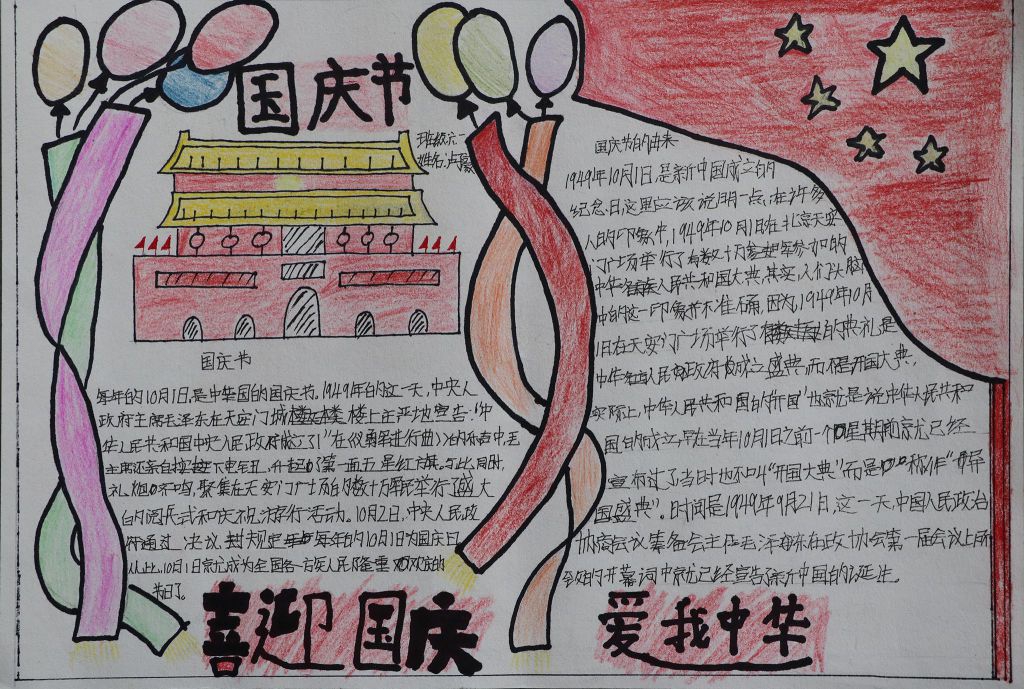 国庆节
班级:六一
姓名:卢
国庆节
每年的10月1日,是中华国的国庆节。1949年的这一天,中央人
政府主席毛泽东在天安门城楼 楼上庄严地宣告:"中
华人民共和国中央人民政府成立了!"在《义勇军进行曲》的 声中,毛
主席还亲自按 下电钮,升起了第一面五星红旗。与此同时,
礼炮 鸣,聚集在天安门广场的数十万军民举行了盛大
的阅兵式和庆祝游行活动。10月2日,中央人民政
府通过决议,规定 每年的10月1日为国庆日,
从此,10月1日就成为全国各族人民隆重 的
节日了。
喜迎国庆
国庆节的由来
1949年10月1日,是新中国成立的
纪念日,这里应该说明一点,在许多
人的印象中,1949年10月1日在北京天安
门广场举行了有数十万 军参加的
中华 人民共和国大典,其实,人们头脑
中的这一印象并不准确,因为,1949年10月
1日在天安门广场举行了 的典礼是
中华 人民 政府成立盛典,而不是开国大典,
实际上,中华人民共和国的"开国"也就是说中华人民共和
国的成立,早在当年10月1日之前一个星期前就已经
宣布过了当时也不叫"开国大典"而是 称作"开
国盛典"。时间是1949年9月21日,这一天,中国人民政治
协商会议筹备会主任毛泽东在政协会第一届会议上所
致的开幕词中就已经宣告了新中国的诞生。
爱我中华